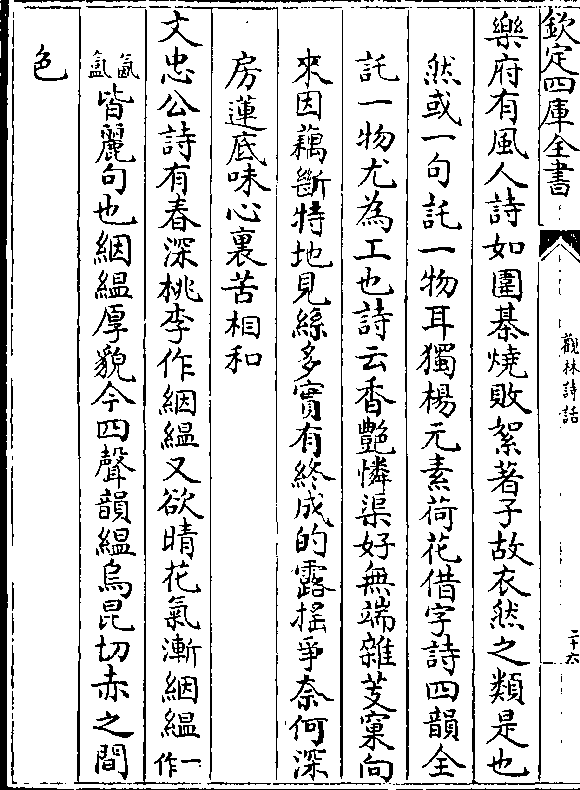 欽定四庫全書
觀林詩話
二十六
樂府有風人詩如圍棊燒敗絮著子故衣然之類是也
然或一句託一物耳獨楊元素荷花借字詩四韻全
託一物尤為工也詩云香艷憐渠好無端雜芰窠向
來因藕斷特地見絲多實有終成的露搖爭奈何深
房蓮底味心裏苦相和
文忠公詩有春深桃李作絪縕又欲晴花氣漸絪縕一作
氤氳皆麗句也絪縕厚貌今四聲韻縕烏昆切赤之間
色